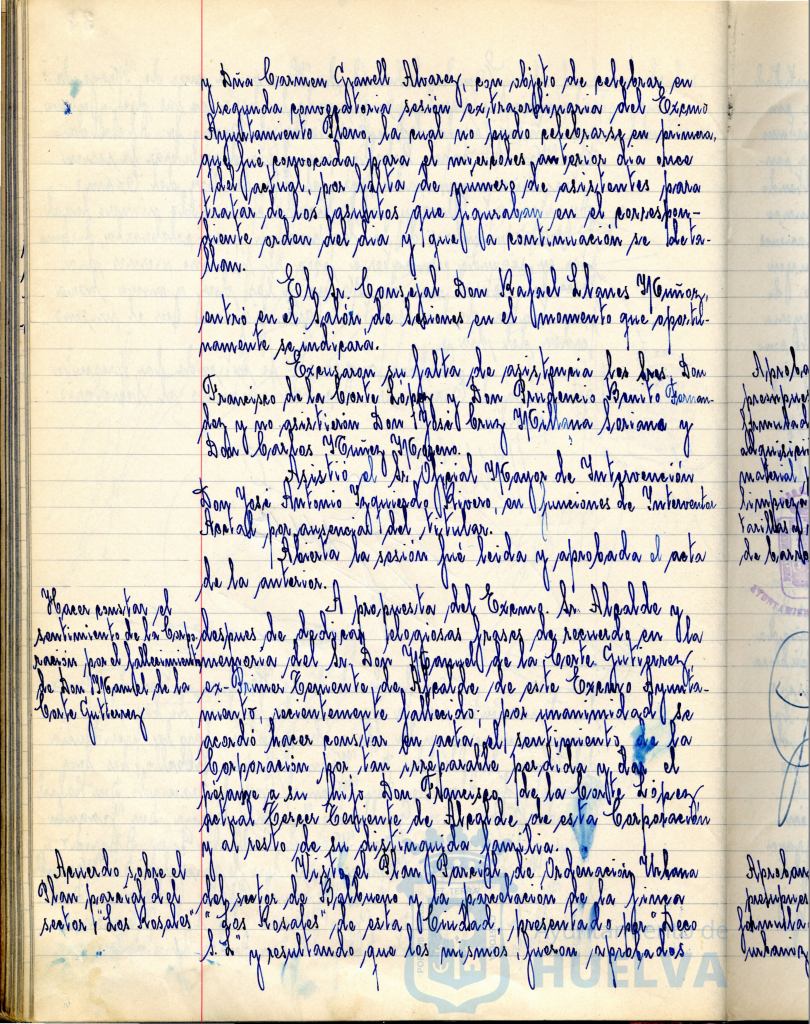 y Dña Carmen Granell Alvarez, con objeto de celebrar en
segunda convocatoria sesión extraordinaria del Excmo
Ayuntamiento Pleno, la cual no pudo celebrarse en primera,
que fué convocada para el miercoles anterior dia once
del actual, por falta de numero de asistentes para
tratar de los asuntos que figuraban en el correspon-
diente orden del dia y que a continuación se deta-
llan.
El Sr. Consejal Don Rafael Llanes Muñoz,
entró en el Salón de Sesiones en el momento que oportu-
namente se indicará.
Excusaron su falta de asistencia los Sres. Don
Francisco de la Corte López y Don Prudencio Benito Fernan-
dez y no asistieron Don José Cruz Millana Soriano y
Don Carlos Núñez Moreno.
Asistió el Sr. Oficial Mayor de Intervención
Don José Antonio Izquierdo Rivero, en funciones de Interventor
Acctal por ausencia del titular.
Abierta la sesión fué leida y aprobada el acta
de la anterior.
Hacer constar el
sentimiento de la Corpo
ración por el fallecimiento
de Don Manuel de la
Corte Gutierrez
A propuesta del Excmo. Sr. Alcalde y
despues de dedicar elogiosas frases de recuerdo en la
memoria del Sr. Don Manuel de la Corte Gutierrez,
ex-Primer Teniente de Alcalde de este Excmo Ayunta-
miento, recientemente fallecido, por unanimidad se
acordó hacer constar en acta el sentimiento de la
Corporación por tan irreparable perdida y dar el
pésame a su hijo Don Francisco de la Corte López
actual Tercer Teniente de Alcalde de esta Corporación
y al resto de su distinguida familia.
Acuerdo sobre el
Plan parcial del
sector "Los Rosales"
Visto el Plan Parcial de Ordenación Urbana
del sector de Balbueno y la parcelación de la finca
"Los Rosales" de esta Ciudad, presentado por "Deco
S.L" y resultando que los mismos fueron aprobados
Ayuntamiento de
HUELVA
Aproba
presupues
formulad
adquisicion
material
limpieza
tarillas y
de barro
Aproban
presupues
formula
urbaniz